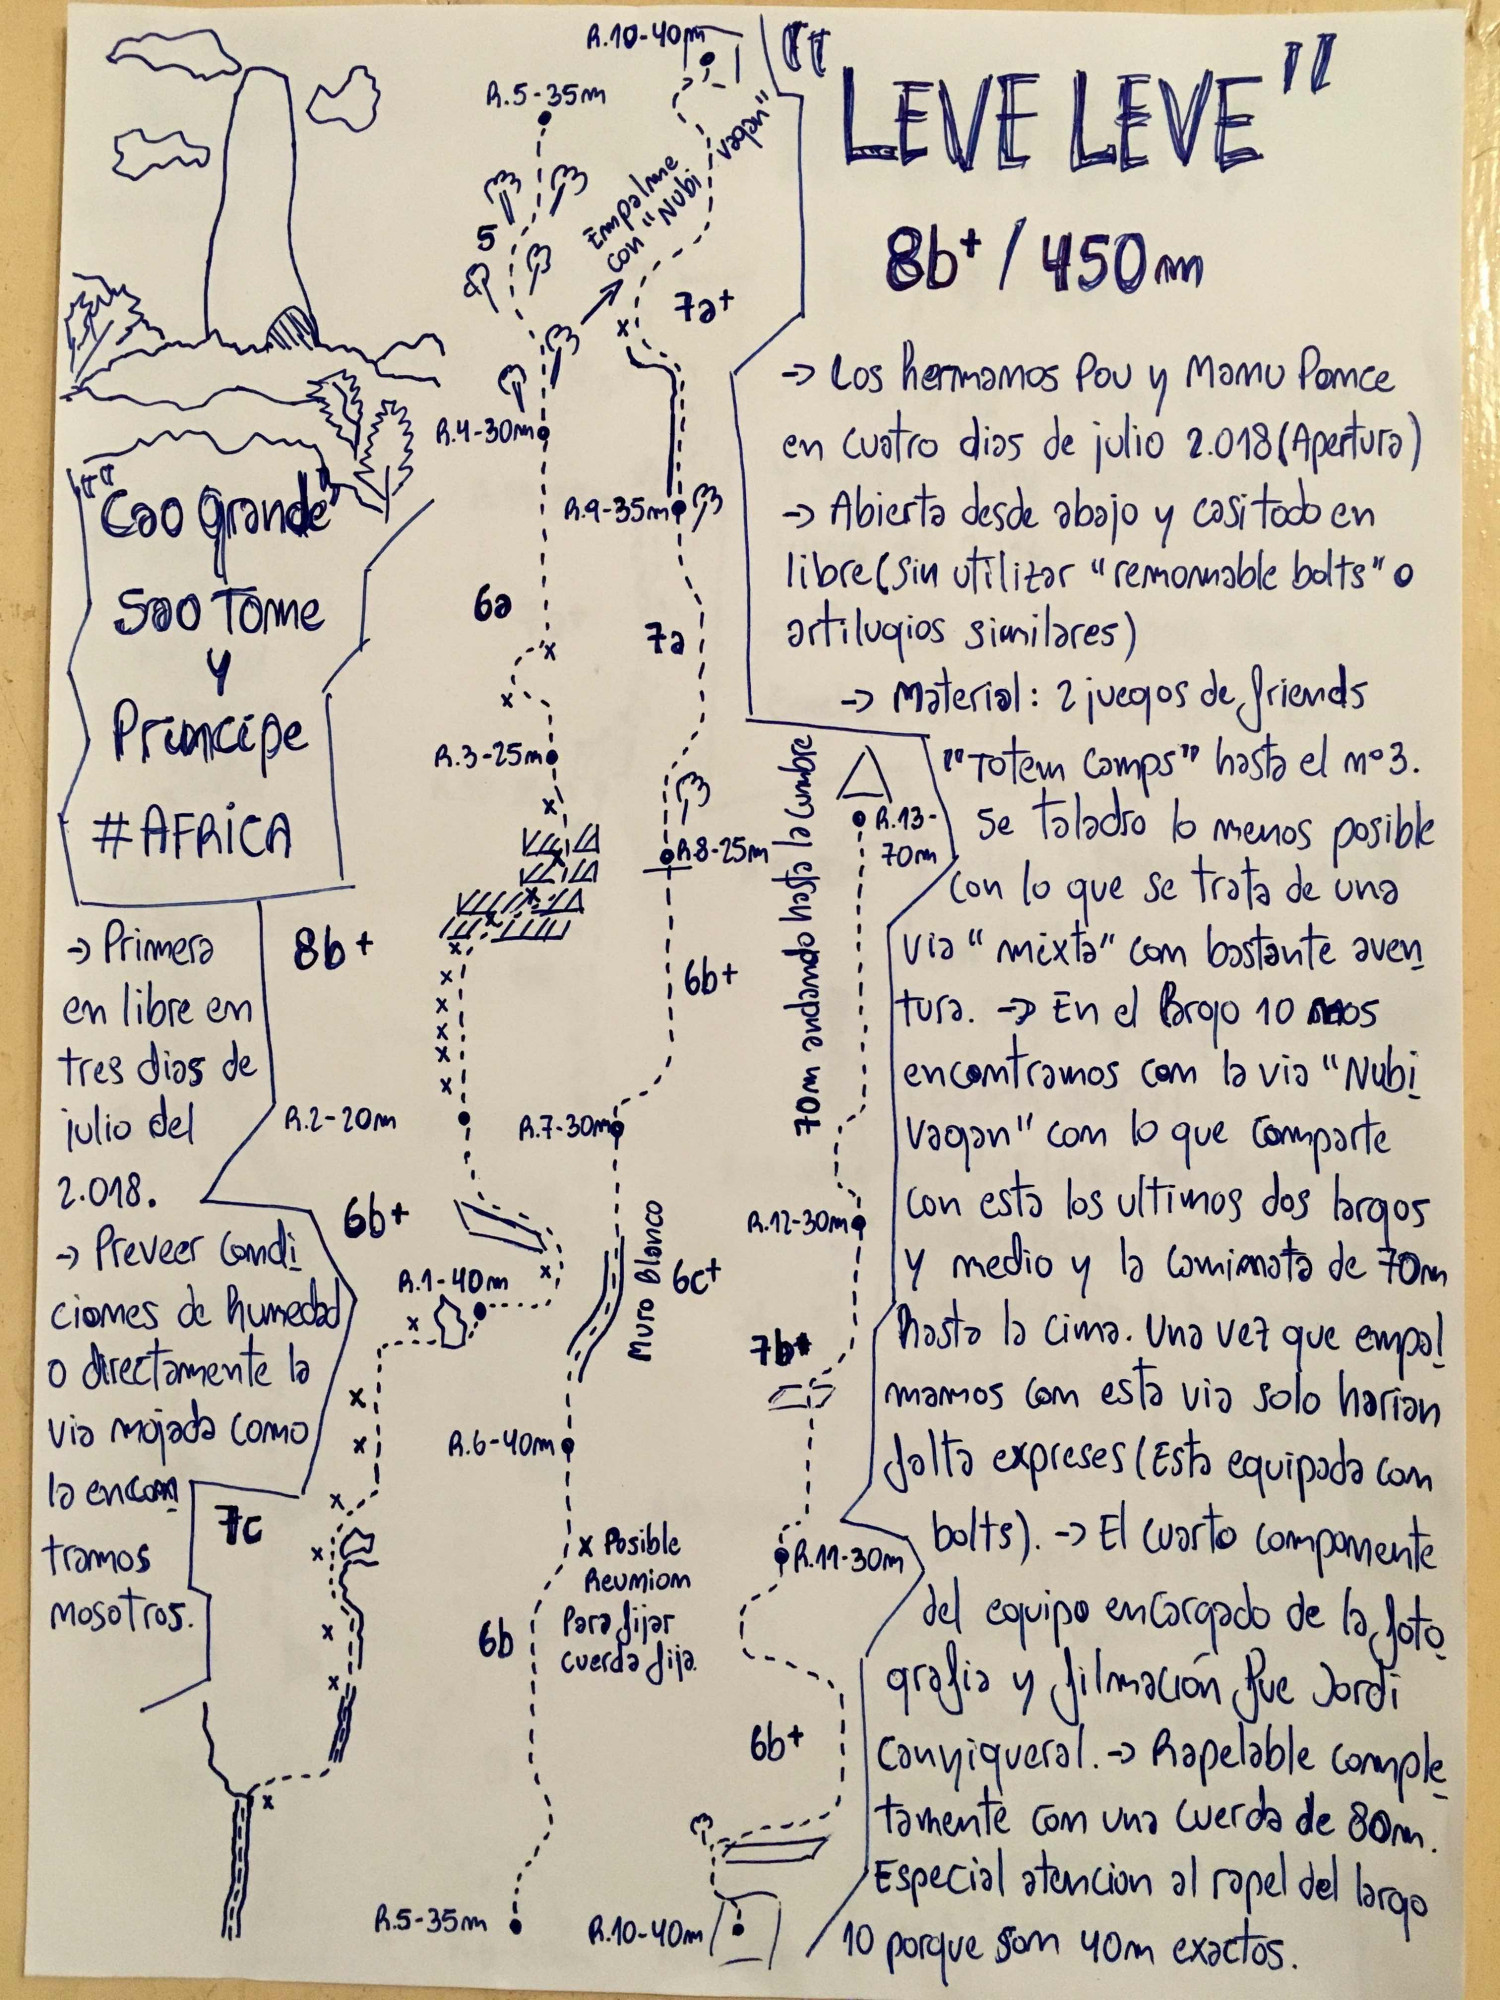 "LEVE LEVE"
8b+ / 450m
→ Los hermanos Pou y Manu Ponce
en cuatro dias de julio 2.018 (Apertura)
→ Abierta desde abajo y casi todo en
libre (sin utilizar "removable bolts" o
artilugios similares)
→ Material: 2 juegos de friends
"Totem Camps" hasta el nº3.
Se taladro lo menos posible
con lo que se trata de una
via "mixta" con bastante aven
tura. → En el largo 10 nos
encontramos con la via "Nubi
vagan" con lo que comparte
con esta los ultimos dos largos
y medio y la caminata de 70m
hasta la cima. Una vez que empal
mamos con esta via solo harian
falta expreses (Esta equipada con
bolts). → El cuarto componente
del equipo encargado de la foto
grafia y filmación fue Jordi
Canyigueral. → Rapelable comple
tamente con una cuerda de 80m.
Especial atencion al rapel del largo
10 porque son 40m exactos.
"Cao Grande"
Sao Tome
y
Principe
#AFRICA
→ Primera
en libre en
tres dias de
julio del
2.018.
→ Preveer condi
ciones de humedad
o directamente la
via mojada como
la encon
tramos
nosotros.
R.5-35m
5
R.4-30m
6a
R.3-25m
8b+
R.2-20m
6b+
R.1-40m
7c
R.10-40m
Empalme
con "Nubi
vagan"
7a+
R.9-35m
7a
R.8-25m
6b+
R.7-30m
Muro Blanco
6c+
R.6-40m
x Posible
Reunion
para fijar
cuerda fija.
6b
R.5-35m
70m andando hasta la cumbre
R.13-
70m
R.12-30m
7b+
R.11-30m
6b+
R.10-40m